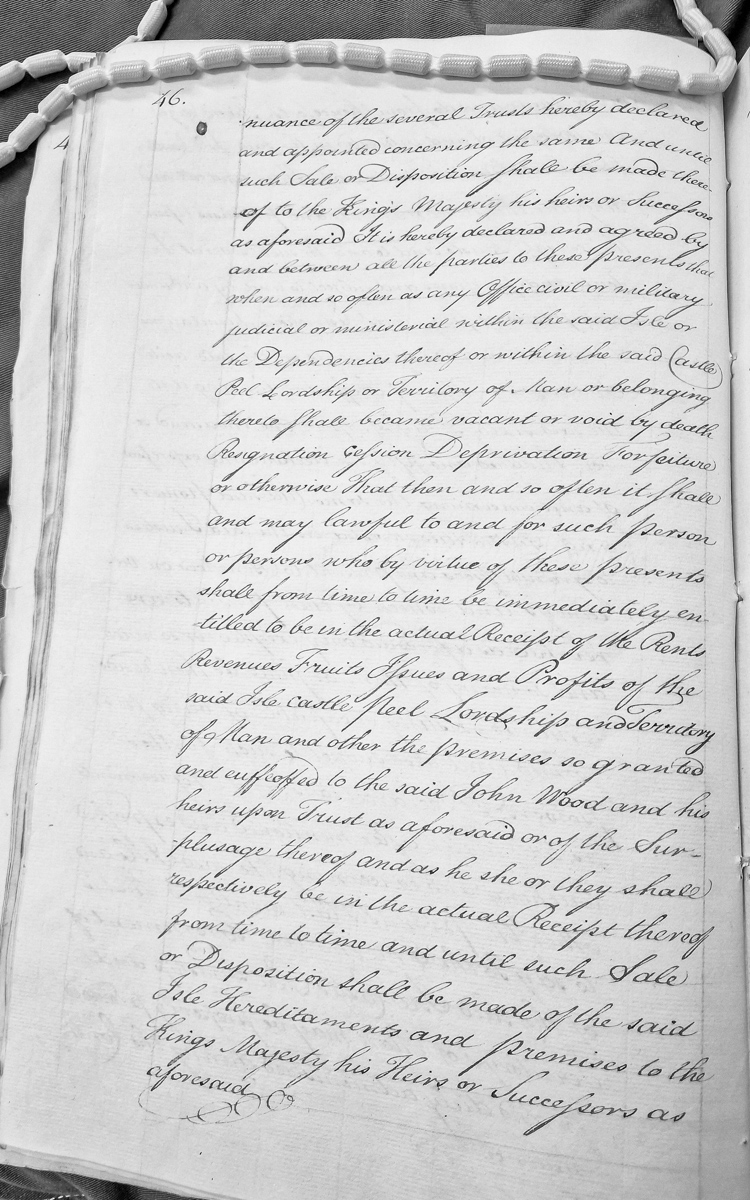 46.
nuance of the several Trusts hereby declared
and appointed concerning the same And until
such Sale or Disposition shall be made there-
of to the King's Majesty his heirs or Successors
as aforesaid It is hereby declared and agreed by
and between all the parties to these presents that
when and so often as any Office civil or military
judicial or ministerial within the said Isle or
the Dependencies thereof or within the said Castle
Peel Lordship or Territory of Man or belonging
thereto shall became vacant or void by death
Resignation Cession Deprivation Forfeiture
or otherwise That then and so often it shall
and may lawful to and for such person
or persons who by virtue of these presents
shall from time to time be immediately en-
-titled to be in the actual Receipt of the Rents
Revenues Fruits Issues and Profits of the
said Isle castle Peel Lordship and Territory
of Man and other the premises so granted
and euffeoffed to the said John Wood and his
heirs upon Trust as aforesaid or of the Sur-
-plusage thereof and as he she or they shall
respectively be in the actual Receipt thereof
from time to time and until such Sale
or Disposition shall be made of the said
Isle Hereditaments and premises to the
Kings Majesty his Heirs or Successors as
aforesaid
4